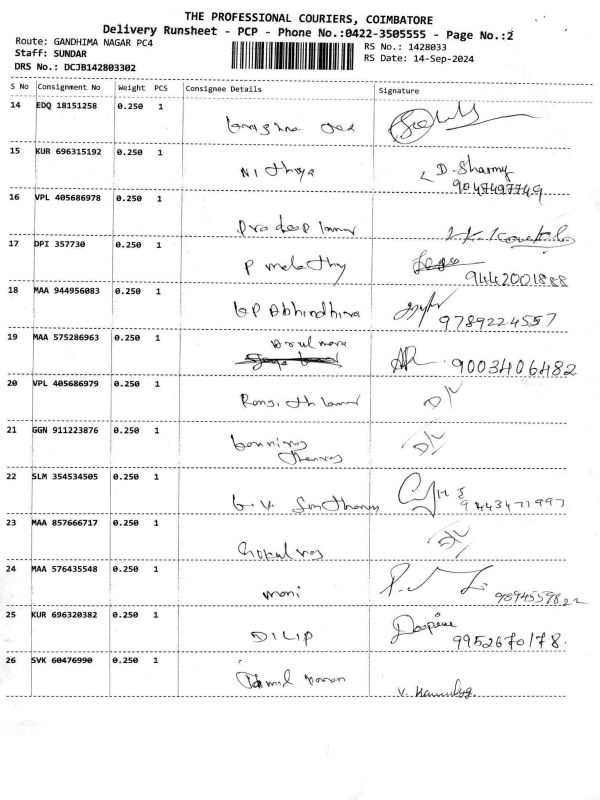 THE PROFESSIONAL COURIERS, COIMBATORE
Delivery Runsheet - PCP - Phone No.:0422-3505555 - Page No.:2
Route: GANDHIMA NAGAR PC4
RS No.: 1428033
Staff: SUNDAR
RS Date: 14-Sep-2024
DRS No.: DCJB142803302
S No Consignment No Weight PCS Consignee Details Signature
14 EDQ 18151258 0.250 1
15 KUR 696315192 0.250 1
Nithya D. Sharmy
9047497749
16 VPL 405686978 0.250 1
Pradeep kumar
17 DPI 357730 0.250 1
P Malathy
9442001888
18 MAA 944956083 0.250 1
GP Abhindhira 9789224557
19 MAA 575286963 0.250 1
9003406482
20 VPL 405686979 0.250 1
Ranjith kumar D/L
21 GGN 911223876 0.250 1
D/L
22 SLM 354534505 0.250 1
G. V. 9443471997
23 MAA 857666717 0.250 1
Gokul raj D/L
24 MAA 576435548 0.250 1
Mani 9894559822
25 KUR 696320382 0.250 1
DILIP 9952670178.
26 SVK 60476990 0.250 1
Tamil